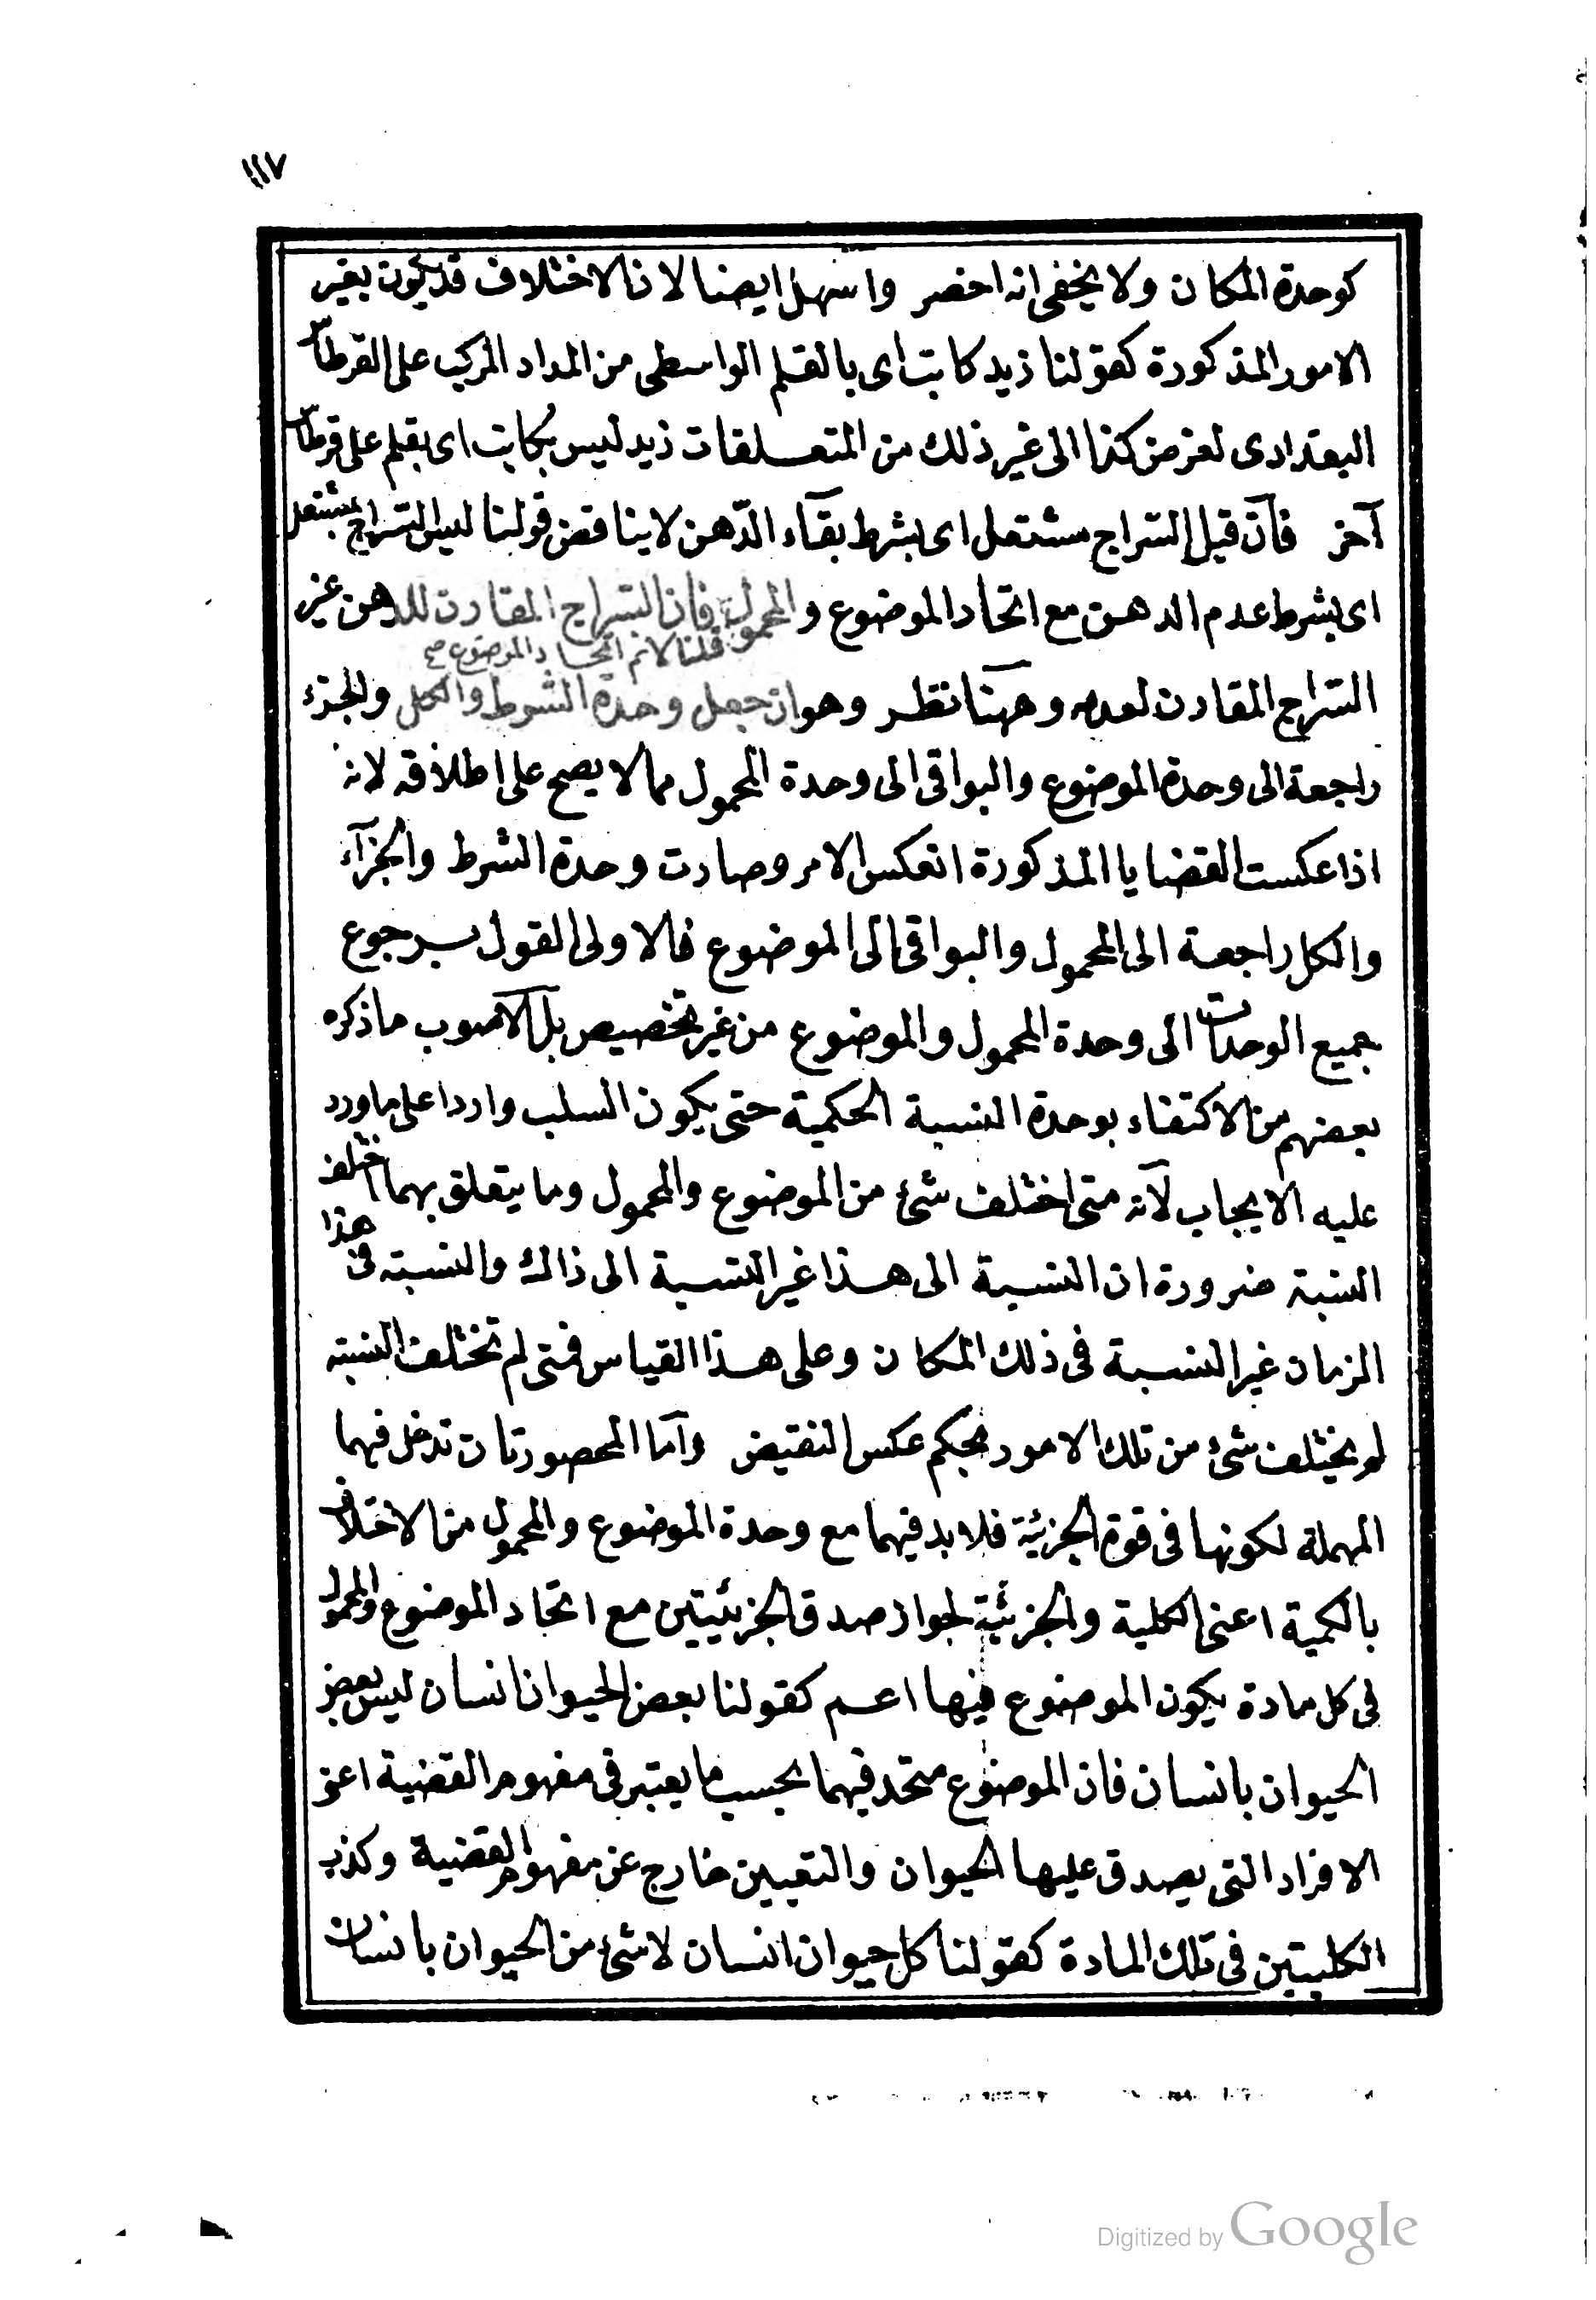 ١١٧
كوحدة المكان ولا يخفى انه اخصر واسهل ايضا لان الاختلاف قد يكون بغير
الامور المذكورة كقولنا زيد كاتب اى بالقلم الواسطى من المداد المركب على القرطاس
البغدادى لغرض كذا الى غير ذلك من المتعلقات زيد ليس بكاتب اى بقلم على قرطاس
آخر فان قيل السراج مشتعل اى بشرط بقاء الدّهن لا يناقض قولنا ليس السراج بمشتعل
اى بشرط عدم الدهن مع اتحاد الموضوع والمحمول فان السراج المقارن للدهن غير
قلنا لانم اتحاد الموضوع صح
السراج المقارن لعدمه وههنا نظر وهو ان جعل وحدة الشرط والكل والجزء
راجعة الى وحدة الموضوع والبواقى الى وحدة المحمول مما لا يصح على اطلاقه لانه
اذا عكست القضايا المذكورة انعكس الامر وصارت وحدة الشرط والجزآء
والكل راجعة الى المحمول والبواقى الى الموضوع فالاولى القول برجوع
جميع الوحدات الى وحدة المحمول والموضوع من غير تخصيص بل الاصوب ما ذكره
بعضهم من الاكتفاء بوحدة النسبة الحكمية حتى يكون السلب واردا على ما ورد
عليه الايجاب لانه متى اختلف شئ من الموضوع والمحمول وما يتعلق بهما اختلف
النسبة ضرورة ان النسبة الى هذا غير النسبة الى ذاك والنسبة فى هذا
الزمان غير النسبة فى ذلك المكان وعلى هذا القياس فمتى لم تختلف النسبة
لم يختلف شئ من تلك الامور بحكم عكس النقيض واما المحصورتان تدخل فيهما
المهملة لكونها فى قوة الجزئية فلا بد فيهما مع وحدة الموضوع والمحمول من الاختلاف
بالكمية اعنى الكلية والجزئية لجواز صدق الجزئيتين مع اتحاد الموضوع والمحمول
فى كل مادة يكون الموضوع فيها اعم كقولنا بعض الحيوان انسان ليس بعض
الحيوان بانسان فان الموضوع متحد فيهما بحسب ما يعتبر فى مفهوم القضية اعنى
الافراد التى يصدق عليها الحيوان والتعيين خارج عن مفهوم القضية وكذب
الكليتين فى تلك المادة كقولنا كل حيوان انسان لا شئ من الحيوان بانسان
Digitized by Google